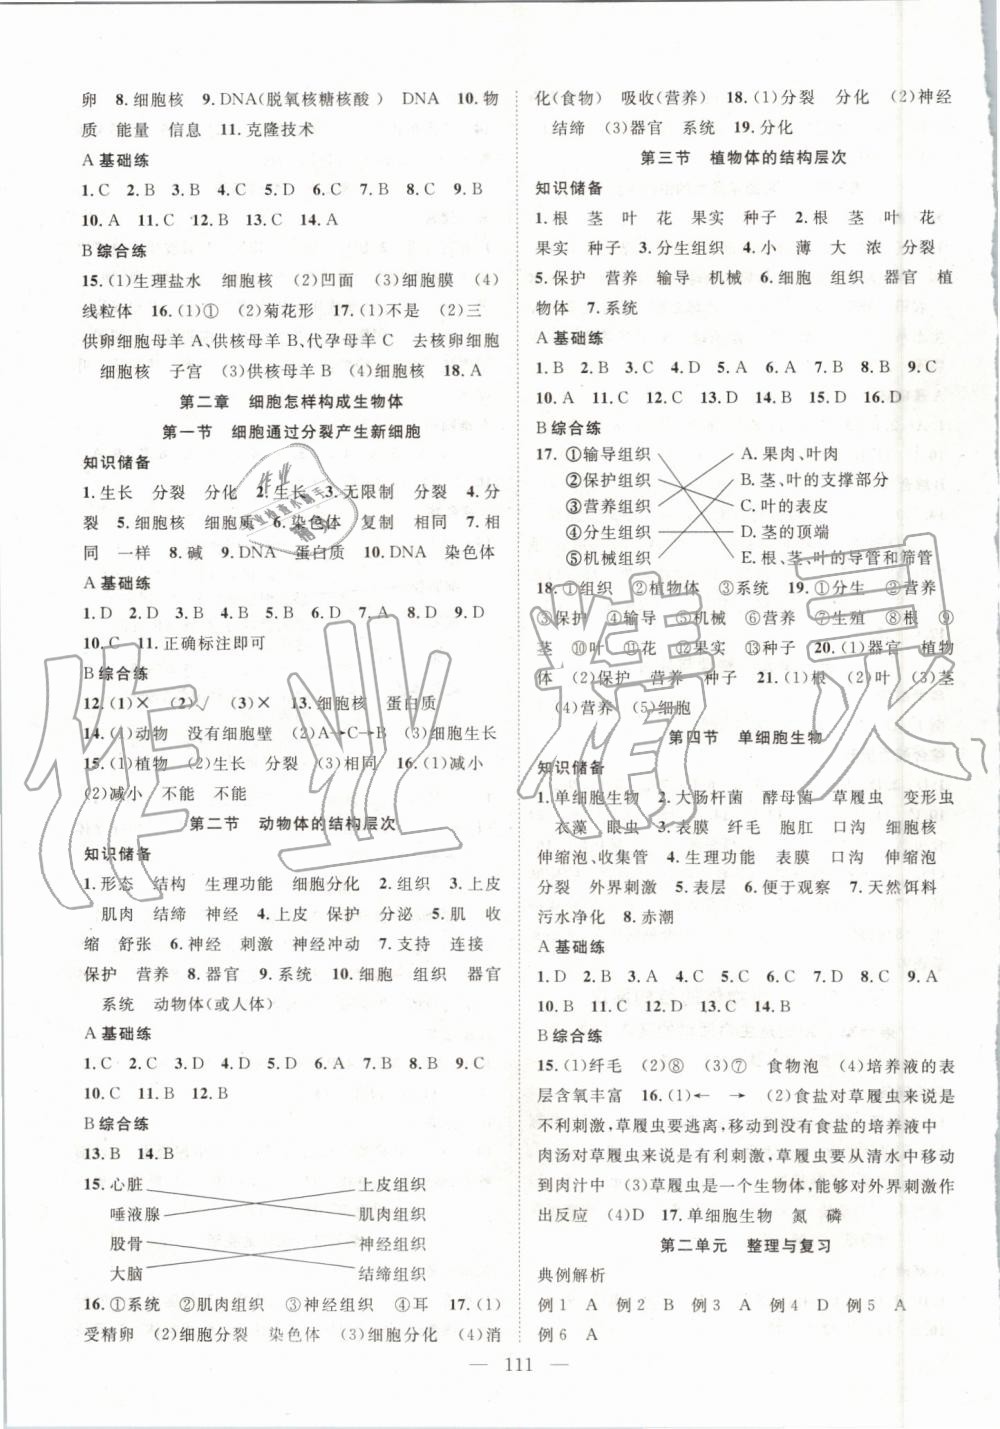 卵　8.细胞核　9.DNA(脱氧核糖核酸)　DNA　10.物
质　能量　信息　11.克隆技术
A 基础练
1.C　2.B　3.B　4.C　5.D　6.C　7.B　8.C　9.B
10.A　11.C　12.B　13.C　14.A
B 综合练
15.(1)生理盐水　细胞核　(2)凹面　(3)细胞膜　(4)
线粒体　16.(1)①　(2)菊花形　17.(1)不是　(2)三
供卵细胞母羊 A、供核母羊 B、代孕母羊 C　去核卵细胞
细胞核　子宫　(3)供核母羊 B　(4)细胞核　18.A
第二章　细胞怎样构成生物体
第一节　细胞通过分裂产生新细胞
知识储备
1.生长　分裂　分化　2.生长　3.无限制　分裂　4.分
裂　5.细胞核　细胞质　6.染色体　复制　相同　7.相
同　一样　8.碱　9.DNA　蛋白质　10.DNA　染色体
A 基础练
1.D　2.D　3.D　4.B　5.D　6.A　7.D　8.D　9.D
10.C　11.正确标注即可
B 综合练
12.(1)×　(2)√　(3)×　13.细胞核　蛋白质
14.(1)动物　没有细胞壁　(2)A→C→B　(3)细胞生长
15.(1)植物　(2)生长　分裂　(3)4　16.(1)减小
(2)减小　不能　不能
第二节　动物体的结构层次
知识储备
1.形态　结构　生理功能　细胞分化　2.组织　3.上皮
肌肉　结缔　神经　4.上皮　保护　分泌　5.肌　收
缩　舒张　6.神经　刺激　神经冲动　7.支持　连接
保护　营养　8.器官　9.系统　10.细胞　组织　器官
系统　动物体(或人体)
A 基础练
1.C　2.C　3.D　4.D　5.D　6.A　7.B　8.B　9.C
10.C　11.B　12.B
B 综合练
13.B　14.B
15.心脏　上皮组织
唾液腺　肌肉组织
股骨　神经组织
大脑　结缔组织
16.①系统　②肌肉组织　③神经组织　④耳　17.(1)
受精卵　(2)细胞分裂　染色体　(3)细胞分化　(4)消
化(食物)　吸收(营养)　18.(1)分裂　分化　(2)神经
结缔　(3)器官　系统　19.分化
第三节　植物体的结构层次
知识储备
1.根　茎　叶　花　果实　种子　2.根　茎　叶　花
果实　种子　3.分生组织　4.小　薄　大　浓　分裂
5.保护　营养　输导　机械　6.细胞　组织　器官　植
物体　7.系统
A 基础练
1.B　2.B　3.C　4.C　5.A　6.D　7.B　8.B　9.C
10.A　11.C　12.C　13.D　14.D　15.A　16.D
B 综合练
17.①输导组织　A.果肉、叶肉
②保护组织　B.茎、叶的支撑部分
③营养组织　C.叶的表皮
④分生组织　D.茎的顶端
⑤机械组织　E.根、茎、叶的导管和筛管
18.①组织　②植物体　③系统　19.①分生　②营养
③保护　④输导　⑤机械　⑥营养　⑦生殖　⑧根　⑨
茎　⑩叶　⑪花　⑫果实　⑬种子　20.(1)器官　植物
体　(2)保护　营养　种子　21.(1)根　(2)叶　(3)茎
(4)营养　(5)细胞
第四节　单细胞生物
知识储备
1.单细胞生物　2.大肠杆菌　酵母菌　草履虫　变形虫
衣藻　眼虫　3.表膜　纤毛　胞肛　口沟　细胞核
伸缩泡、收集管　4.生理功能　表膜　口沟　伸缩泡
分裂　外界刺激　5.表层　6.便于观察　7.天然饵料
污水净化　8.赤潮
A 基础练
1.D　2.B　3.B　4.A　5.C　6.D　7.B　8.C　9.A
10.B　11.C　12.D　13.C　14.B
B 综合练
15.(1)纤毛　(2)⑧　(3)⑦　食物泡　(4)培养液的表
层含氧丰富　16.(1)←　→　(2)食盐对草履虫来说是
不利刺激,草履虫要逃离,移动到没有食盐的培养液中
肉汤对草履虫来说是有利刺激,草履虫要从清水中移动
到肉汁中　(3)草履虫是一个生物体,能够对外界刺激作
出反应　(4)D　17.单细胞生物　氮　磷
第二单元　整理与复习
典例解析
例 1　A　例 2　B　例 3　A　例 4　B　例 5　A
例 6　A
— 111 —
作业精灵